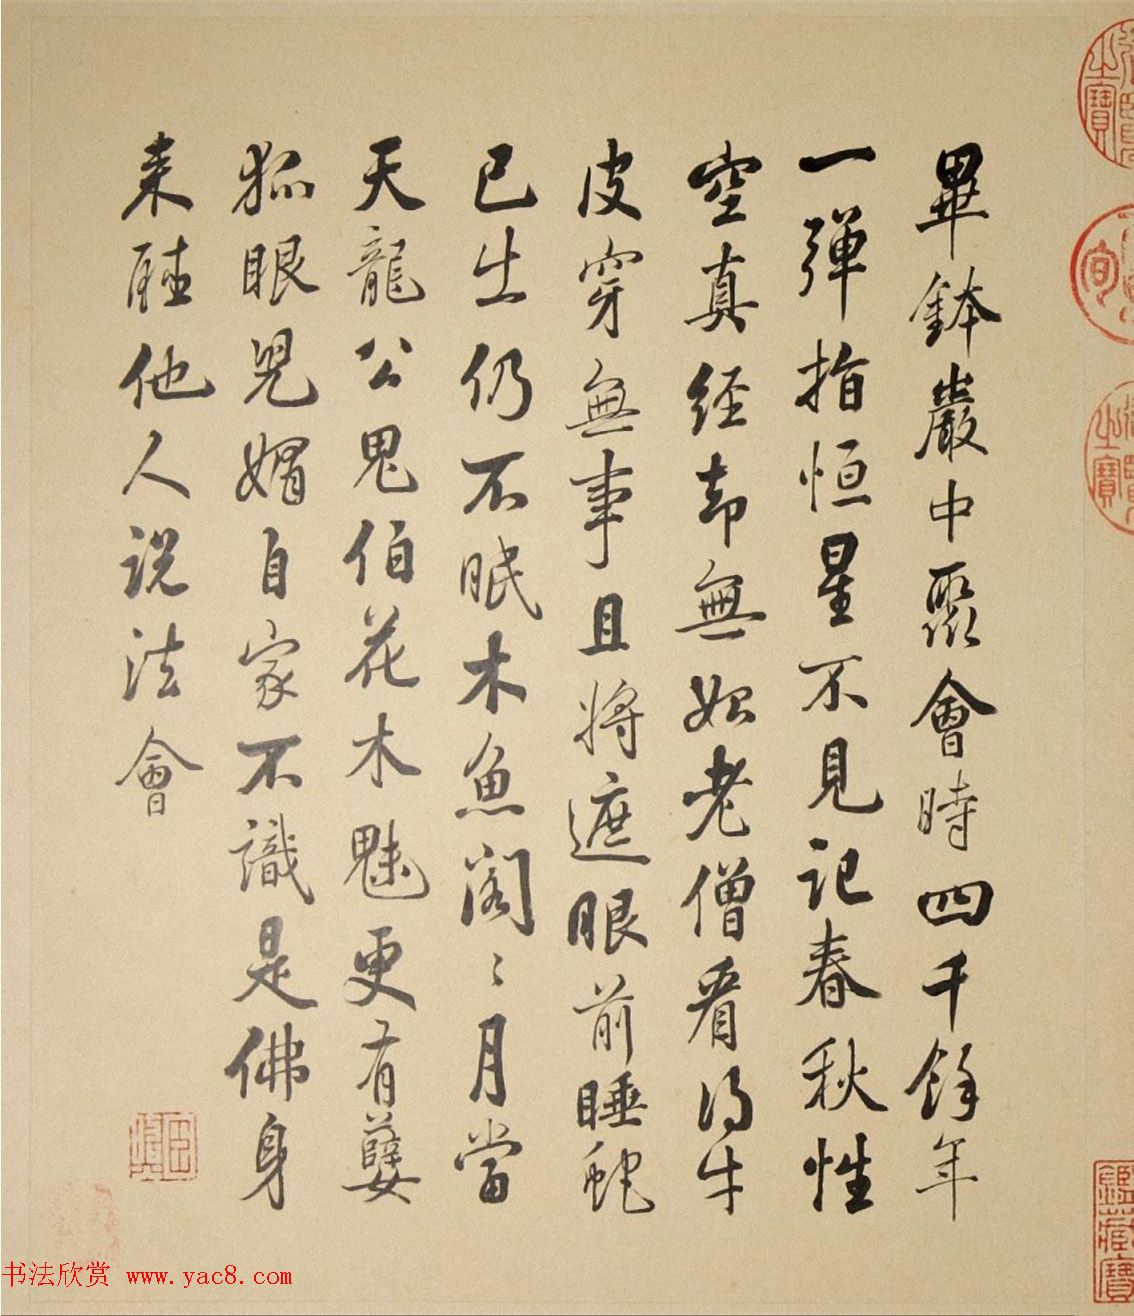 畢鉢巖中聚會時四千餘年
一彈指恒星不見記春秋性
空真經却無如老僧看得牛
皮穿無事且將遮眼前睡蛇
已出仍不眠木魚閣閣月當
天龍公鬼伯花木魅更有孽
狐眼兒媚自家不識是佛身
来聽他人说法會
書法欣赏 www.yac8.com